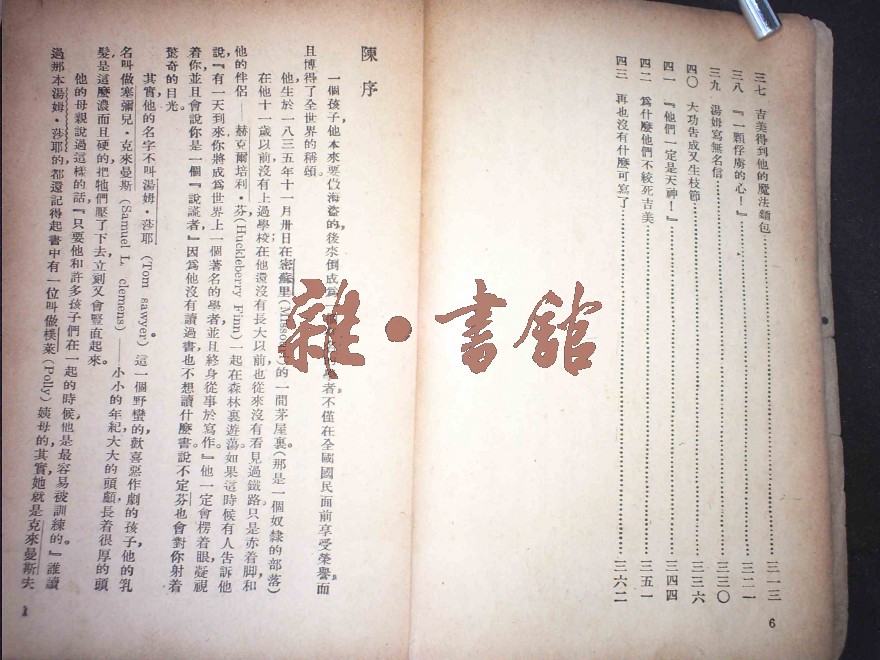 三七 吉美得到他的魔法麵包……三一三
三八 『一顆俘虜的心！』……三二一
三九 湯姆寫無名信……三三〇
四〇 大功告成又生枝節……三三六
四一 『他們一定是天神！』……三四四
四二 為什麼他們不絞死吉美……三五一
四三 再也沒有什麼可寫了……三六二
6
陳序
一個孩子，他本來要做海盜的，後來倒成為一 者不僅在全國國民面前享受榮譽，而
且博得了全世界的稱頌。
他生於一八三五年十一月卅日在密蘇里(Missouri)的一間茅屋裏。(那是一個奴隸的部落)
在他十一歲以前，沒有上過學校；在他還沒有長大以前，也從來沒有看見過鐵路，只是赤着脚，和
他的伴侶——赫克爾培利·芬(Huckleberry Finn)一起在森林裏遊蕩。如果這時候有人告訴他
說：『有一天到來，你將成為世界上一個著名的學者，並且終身從事於寫作。』他一定會楞着眼凝視
着你，並且會說你是一個『說謊者，』因為他沒有讀過書，也不想讀什麼書，說不定芬也會對你射着
驚奇的目光。
其實他的名字不叫湯姆·莎耶(Tom sawyer)。這一個野蠻的歡喜惡作劇的孩子，他的乳
名叫做塞彌兒·克來曼斯(Samuel L. clemens)——小小的年紀，大大的頭顱，長着很厚的頭
髮，是這麼濃而且硬的，把牠們壓了下去，立刻又會豎直起來。
他的母親說過這樣的話：『只要他和許多孩子們在一起的時候，他是最容易被訓練的。』誰讀
過那本湯姆·莎耶的，都還記得起書中有一位叫做樸萊(Polly)姨母的，其實她就是克來曼斯夫
1
雜·書館